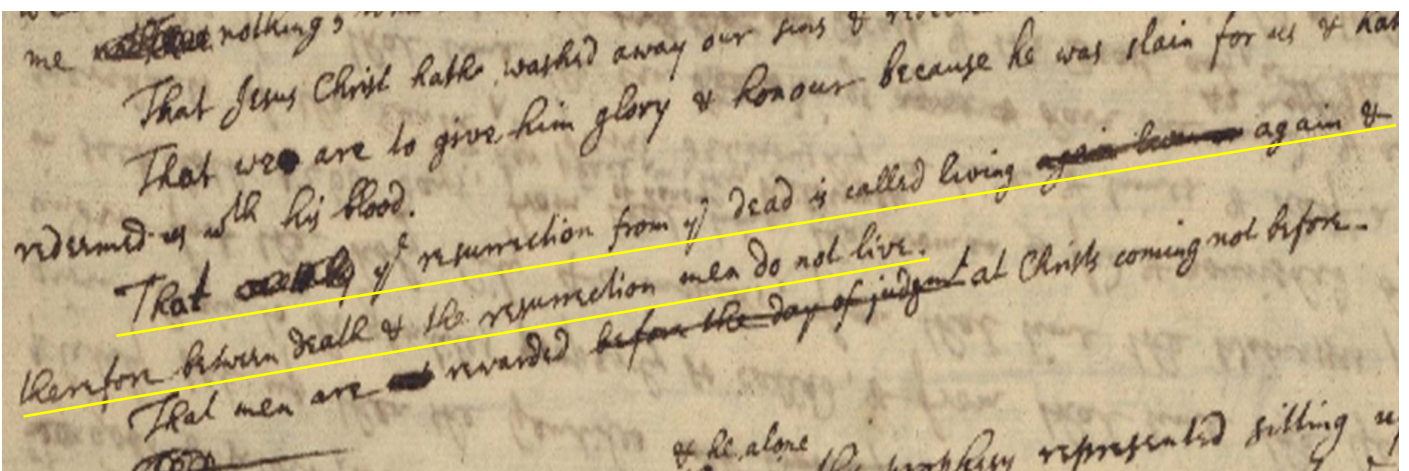 me nothing,
That Jesus Christ hath washed away our sins &
That we are to give him glory & honour because he was slain for us & hat
redeemed us wth his blood.
That ye resurrection from ye dead is called living again & 
therefore between death & the resurrection men do not live.
That men are rewarded before the day of judgmt at Christs coming not before.
& he alone
the prophesy represented sitting up